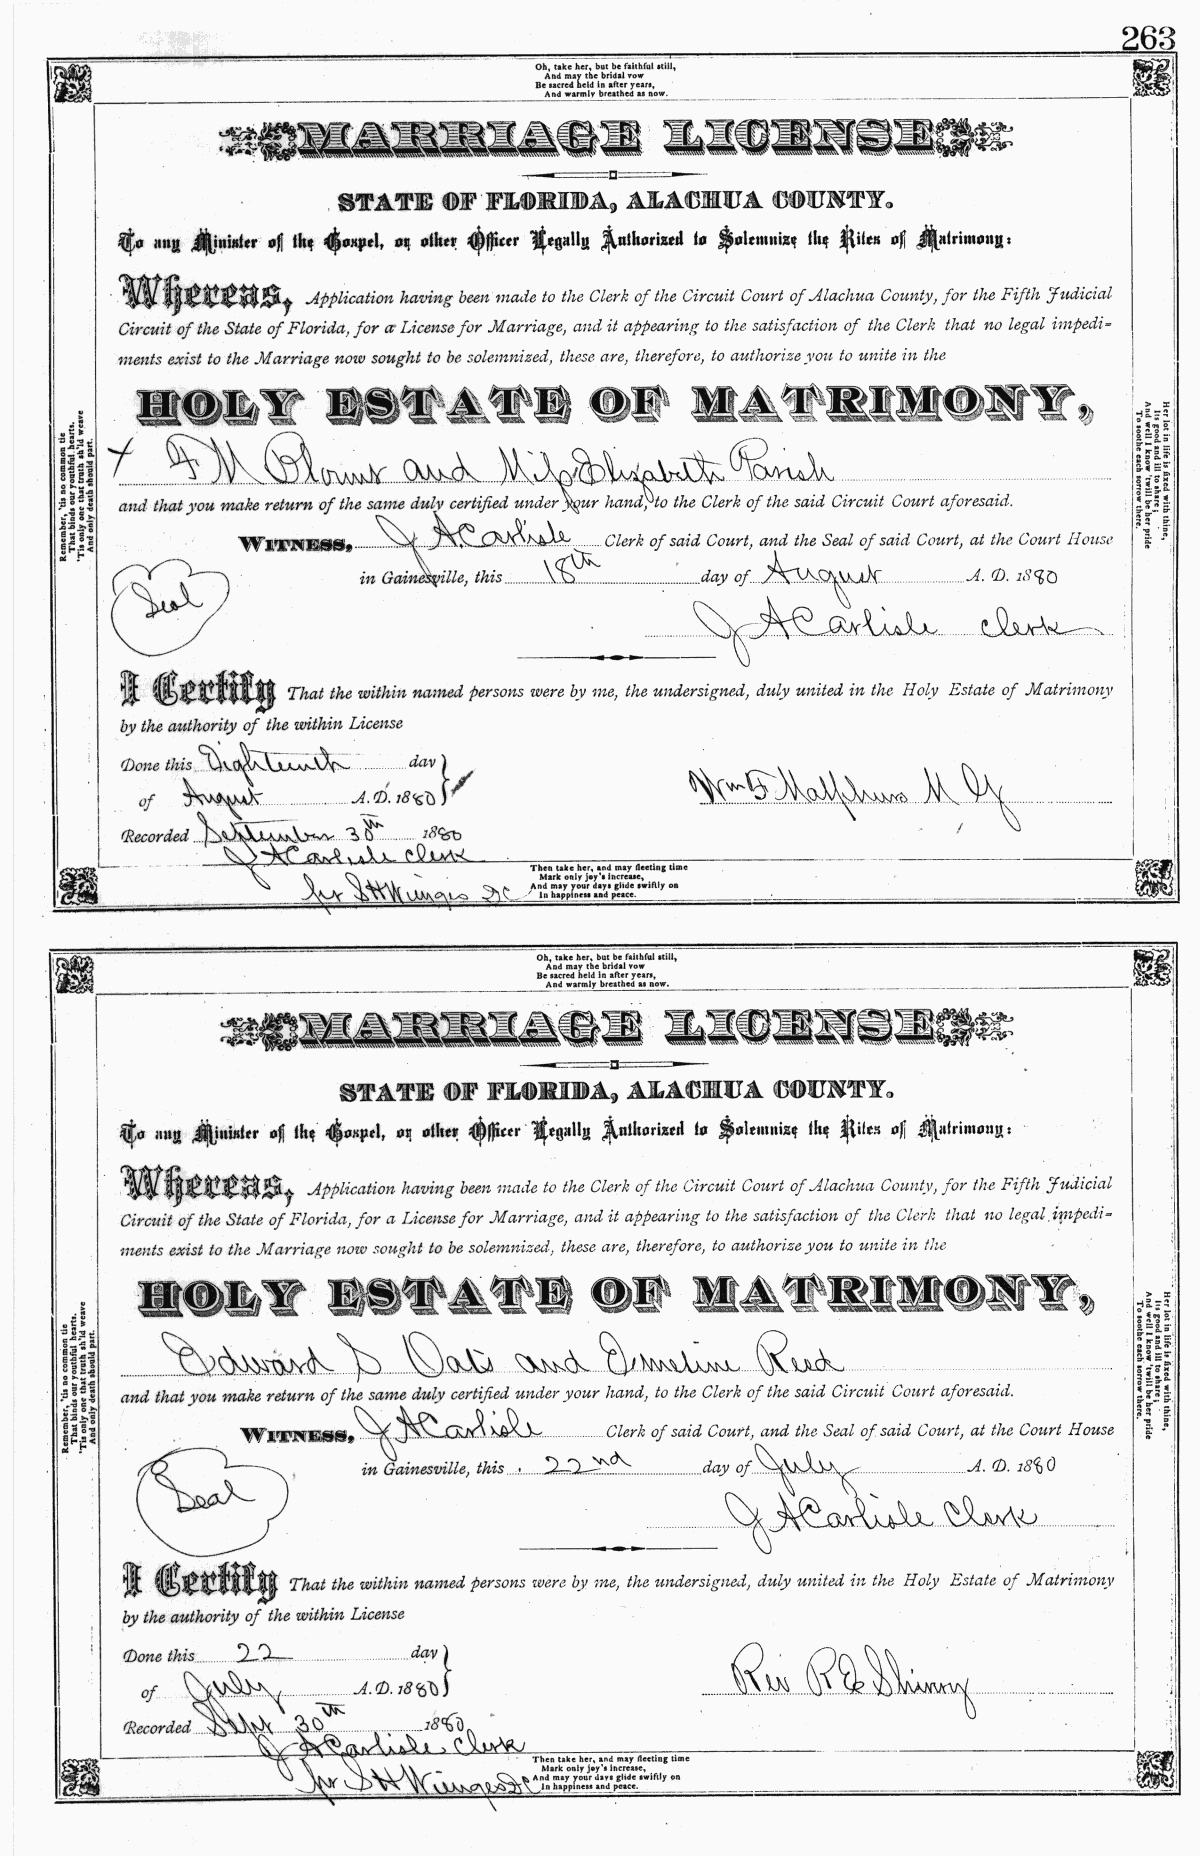 263
Oh, take her, but be faithful still,
And may the bridal vow
Be sacred held in after years,
And warmly breathed as now.
MARRIAGE LICENSE
STATE OF FLORIDA, ALACHUA COUNTY.
To any Minister of the Gospel, or other Officer Legally Authorized to Solemnize the Rites of Matrimony:
Whereas, Application having been made to the Clerk of the Circuit Court of Alachua County, for the Fifth Judicial
Circuit of the State of Florida, for a License for Marriage, and it appearing to the satisfaction of the Clerk that no legal impedi-
ments exist to the Marriage now sought to be solemnized, these are, therefore, to authorize you to unite in the
HOLY ESTATE OF MATRIMONY,
F M Blount and Miss Elizabeth Parish
and that you make return of the same duly certified under your hand, to the Clerk of the said Circuit Court aforesaid.
WITNESS, J A Carlisle Clerk of said Court, and the Seal of said Court, at the Court House
in Gainesville, this 18th day of August A. D. 1880
Seal
J A Carlisle Clerk
I Certify That the within named persons were by me, the undersigned, duly united in the Holy Estate of Matrimony
by the authority of the within License
Done this Eighteenth day
of August A. D. 1880
Wm F M G
Recorded September 30th 1880
J A Carlisle Clerk
pr S H Wienges DC
Then take her, and may fleeting time
Mark only joy's increase,
And may your days glide swiftly on
In happiness and peace.
Remember, 'tis no common tie
That binds our youthful hearts,
'Tis only one that truth sh'ld weave
And only death should part.
Her lot in life is fixed with thine,
Its good and ill to share;
And well I know 'twill be her pride
To soothe each sorrow there.
Oh, take her, but be faithful still,
And may the bridal vow
Be sacred held in after years,
And warmly breathed as now.
MARRIAGE LICENSE
STATE OF FLORIDA, ALACHUA COUNTY.
To any Minister of the Gospel, or other Officer Legally Authorized to Solemnize the Rites of Matrimony:
Whereas, Application having been made to the Clerk of the Circuit Court of Alachua County, for the Fifth Judicial
Circuit of the State of Florida, for a License for Marriage, and it appearing to the satisfaction of the Clerk that no legal impedi-
ments exist to the Marriage now sought to be solemnized, these are, therefore, to authorize you to unite in the
HOLY ESTATE OF MATRIMONY,
Edward S Oats and Emeline Reed
and that you make return of the same duly certified under your hand, to the Clerk of the said Circuit Court aforesaid.
WITNESS, J A Carlisle Clerk of said Court, and the Seal of said Court, at the Court House
in Gainesville, this 22nd day of July A. D. 1880
Seal
J A Carlisle Clerk
I Certify That the within named persons were by me, the undersigned, duly united in the Holy Estate of Matrimony
by the authority of the within License
Done this 22 day
of July A. D. 1880
Rev R E
Recorded Sept 30th 1880
J A Carlisle Clerk
pr S H Wienges DC
Then take her, and may fleeting time
Mark only joy's increase,
And may your days glide swiftly on
In happiness and peace.
Remember, 'tis no common tie
That binds our youthful hearts,
'Tis only one that truth sh'ld weave
And only death should part.
Her lot in life is fixed with thine,
Its good and ill to share;
And well I know 'twill be her pride
To soothe each sorrow there.